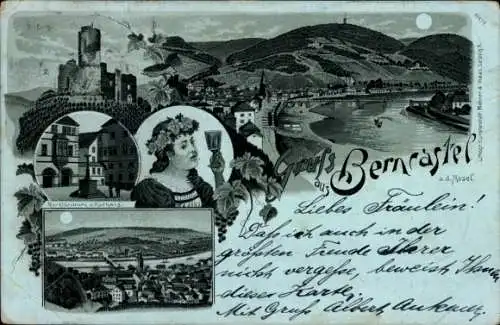 Gruss
aus
Berncastel
a. d. Mosel
Marktbrunnen u. Rathaus.
Liebes Fräulein!
Daß ich auch in der
größten Freude Ihrer
nicht vergesse, beweist Ihnen
diese Karte.
Mit Gruß Albert